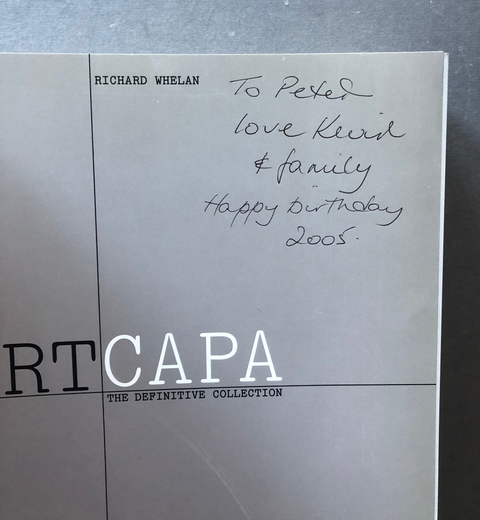 RICHARD WHELAN
To Peter
love Kevin
& family
Happy birthday
2005.
RTCAPA
THE DEFINITIVE COLLECTION